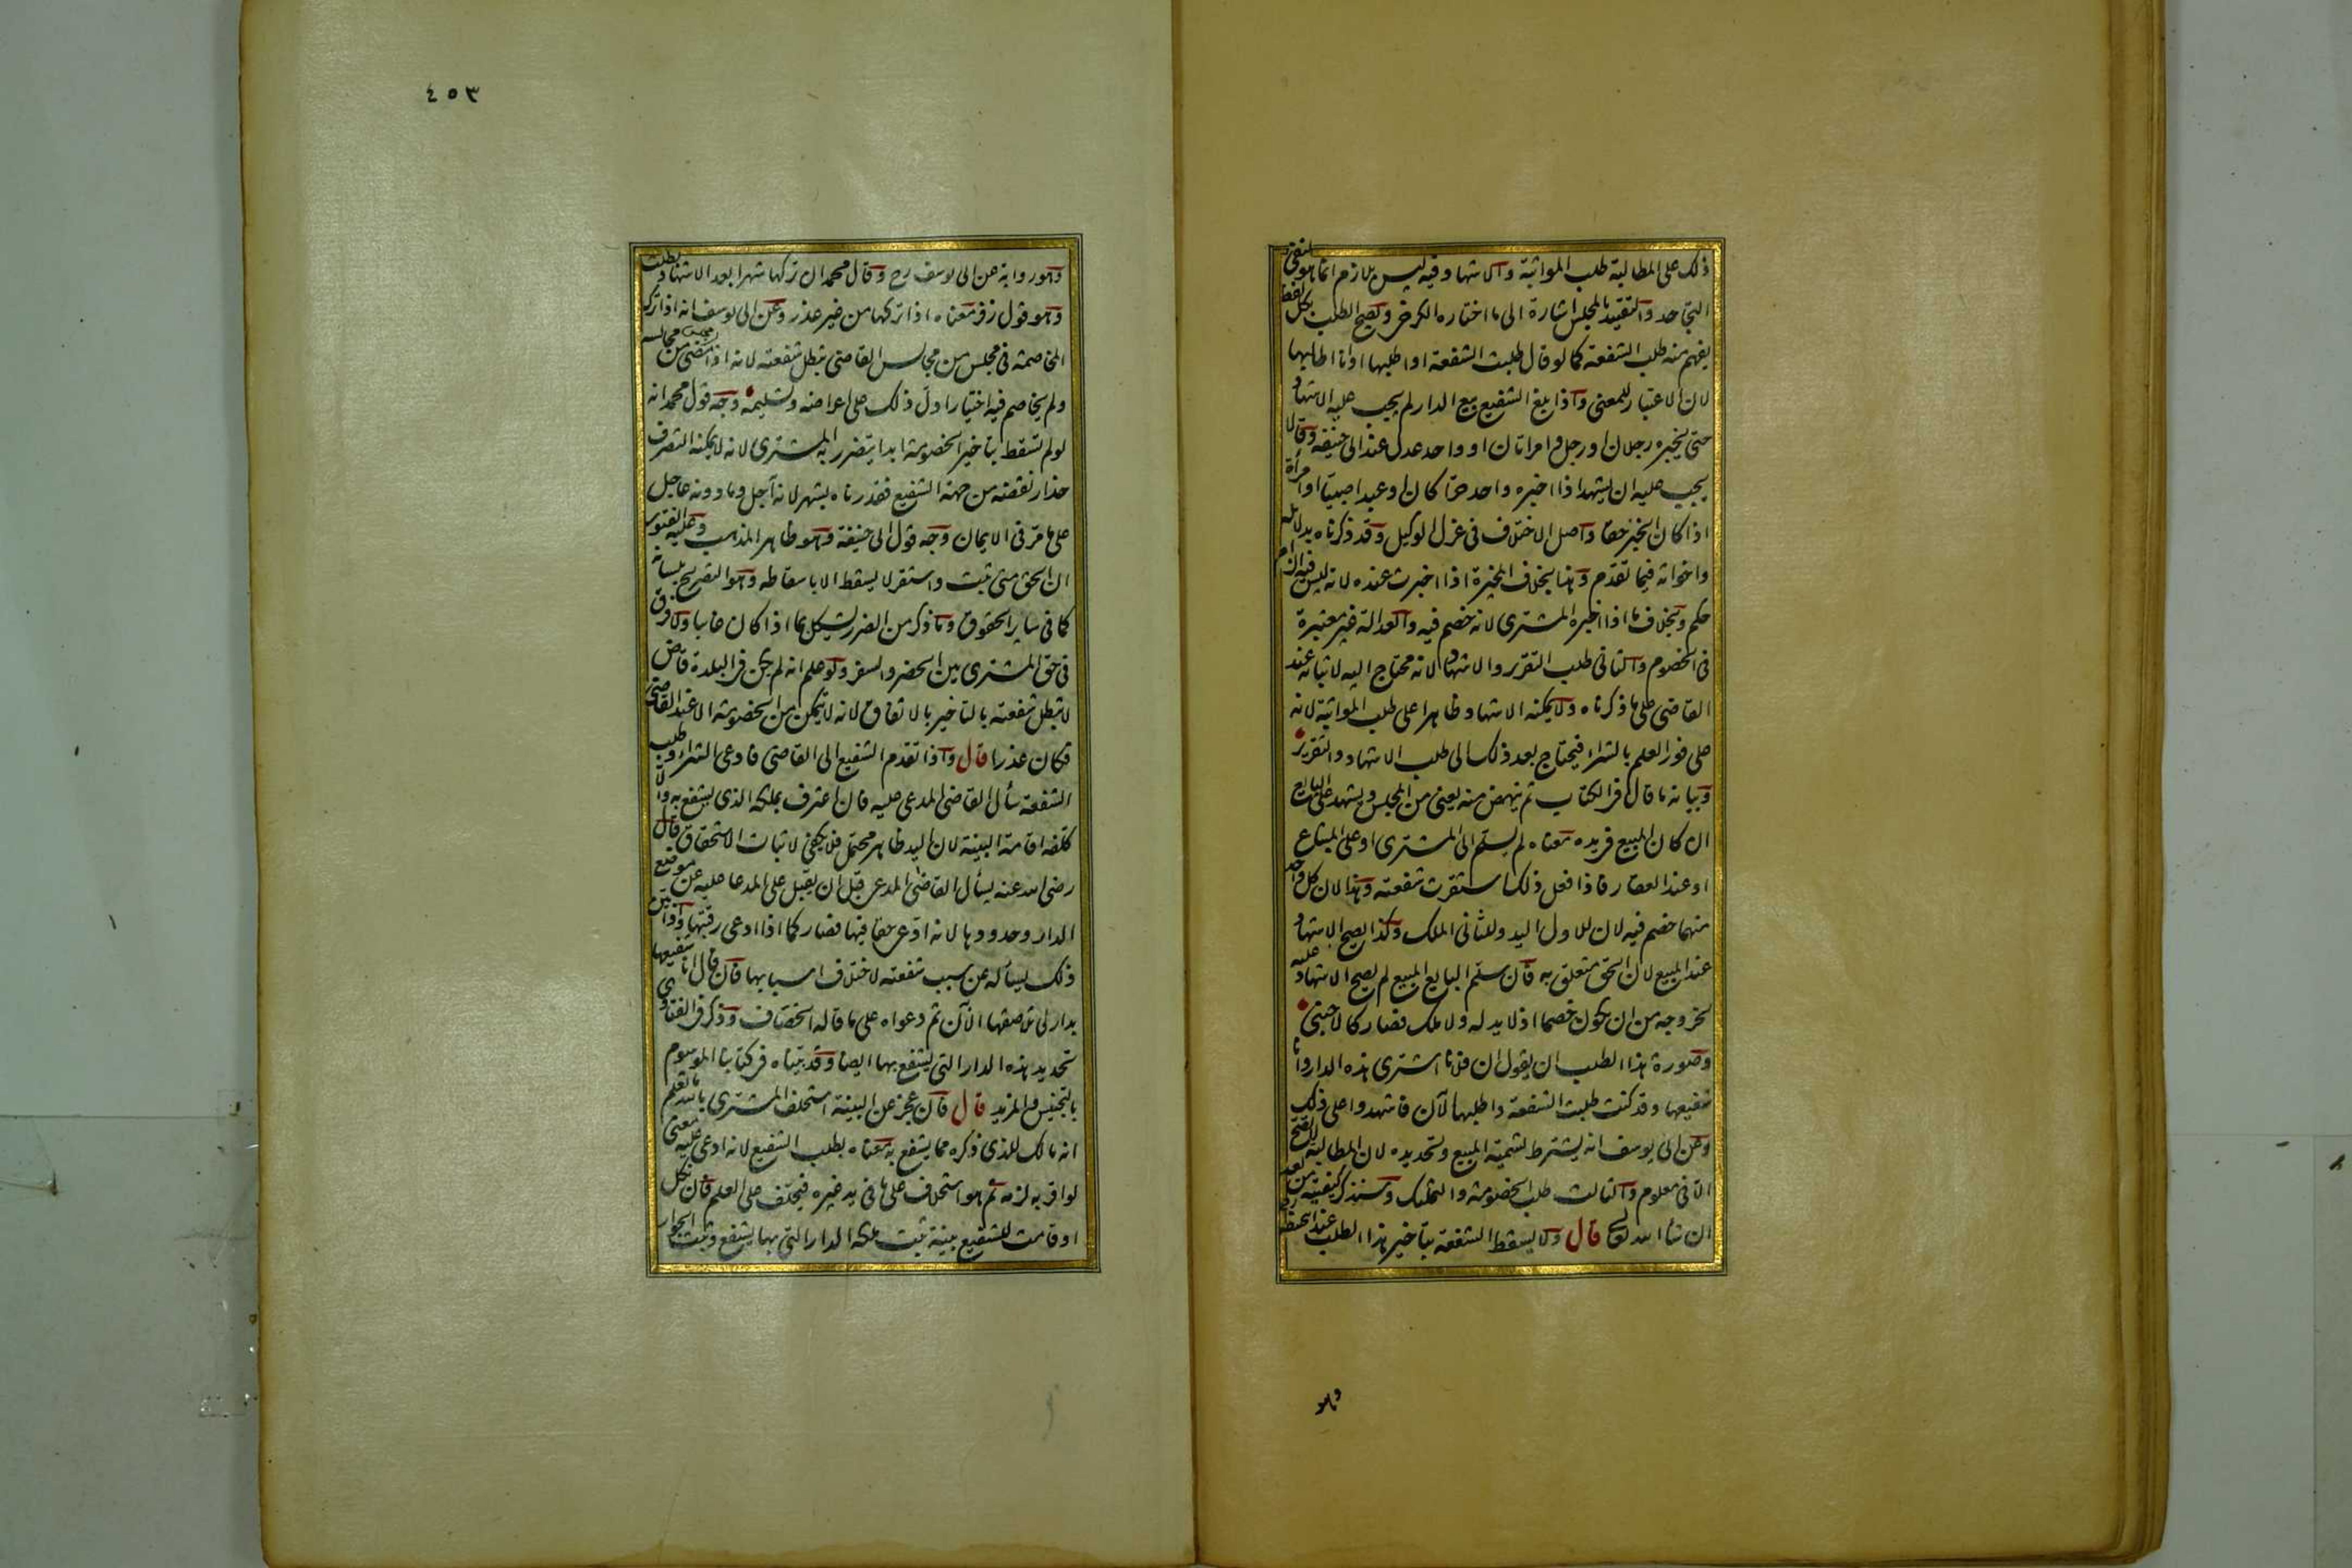 ذلك على المطالبة طلب المواثبة والاشهاد فيه ليس بلازم انما هو لنفى
التجاحد والتقييد بالمجلس اشارة الى ما اختاره الكرخى ويصح الطلب بكل لفظ
يفهم منه طلب الشفعة كما لو قال طلبت الشفعة او اطلبها او انا طالبها
لان الاعتبار للمعنى واذا بلغ الشفيع بيع الدار لم يجب عليه الاشهاد
حتى يخبره رجلان او رجل وامراتان او واحد عدل عند ابى حنيفة وقالا
يجب عليه ان يشهد اذا اخبره واحد حرا كان او عبدا صبيا او امرأة
اذا كان الخبر حقا واصل الاختلاف فى عزل الوكيل وقد ذكرناه بدلائله
واخواته فيما تقدم وهذا بخلاف المخيرة اذا اخبرت عنده لانه ليس فيه الزام
حكم وبخلاف ما اذا اخبره المشترى لانه خصم فيه والعدالة غير معتبرة
فى الخصوم والثانى طلب التقرير والاشهاد لانه محتاج اليه لاثباته عند
القاضى على ما ذكرناه ولا يمكنه الاشهاد ظاهرا على طلب المواثبة لانه
على فور العلم بالشراء فيحتاج بعد ذلك الى طلب الاشهاد والتقرير
وبيانه ما قال فى الكتاب ثم ينهض منه يعنى من المجلس ويشهد على البايع
ان كان المبيع فى يده معناه لم يسلم الى المشترى او على المبتاع
او عند العقار فاذا فعل ذلك استقرت شفعته وهذا لان كل واحد
منهما خصم فيه لان للاول اليد وللثانى الملك وكذا يصح الاشهاد
عند المبيع لان الحق متعلق به فان سلم البايع المبيع لم يصح الاشهاد عليه
لخروجه من ان يكون خصما اذ لا يد له ولا ملك فصار كالاجنبى
وصورة هذا الطلب ان يقول ان فلانا اشترى هذه الدار وانا
شفيعها وقد كنت طلبت الشفعة واطلبها الآن فاشهدوا على ذلك
وعن ابى يوسف انه يشترط تسمية المبيع وتحديده لان المطالبة لا تصح
الا فى معلوم والثالث طلب الخصومة والتملك وسنذكر كيفيته من بعد
ان شاء الله تعالى قال ولا يسقط الشفعة بتاخير هذا الطلب عند ابى حنيفة
وهو
٤٥٣
وهو رواية عن ابى يوسف رح وقال محمد ان تركها شهرا بعد الاشهاد بطلت
وهو قول زفر معناه اذا تركها من غير عذر وعن ابى يوسف انه اذا ترك
المخاصمة فى مجلس من مجالس القاضى تبطل شفعته لانه اذا مضى مجلس من مجالسه
ولم يخاصم فيه اختيارا دل ذلك على اعراضه وتسليمه وجه قول محمد انه
لو لم تسقط بتاخير الخصومة ابدا يتضرر به المشترى لانه لا يمكنه التصرف
حذار نقضه من جهة الشفيع فقدرناه بشهر لانه آجل وما دونه عاجل
على ما مر فى الايمان وجه قول ابى حنيفة وهو ظاهر المذهب وعليه الفتوى
ان الحق متى ثبت واستقر لا يسقط الا باسقاطه وهو التصريح بلسانه
كما فى ساير الحقوق وما ذكر من الضرر يشكل بما اذا كان غايبا ولا فرق
فى حق المشترى بين الحضر والسفر ولو علم انه لم يكن فى البلدة قاض
لا تبطل شفعته بالتاخير بالاتفاق لانه لا يتمكن من الخصومة الا عند القاضى
فكان عذرا قال واذا تقدم الشفيع الى القاضى فادعى الشراء وطلب
الشفعة سأل القاضى المدعى عليه فان اعترف بملكه الذى يشفع به والا
كلفه اقامة البينة لان اليد ظاهر محتمل فلا يكفى لاثبات الاستحقاق قال
رضى الله عنه يسأل القاضى المدعى قبل ان يقبل على المدعا عليه عن موضع
الدار وحدودها لانه ادعى حقا فيها فصار كما اذا ادعى رقبتها واذا بين
ذلك يسأله عن سبب شفعته لاختلاف اسبابها فان قال انا شفيعها
بدار لى تلاصقها الآن تم دعواه على ما قاله الخصاف وذكر فى الفتاوى
تحديد هذه الدار التى يشفع بها ايضا وقد بيناه فى كتابنا الموسوم
بالتجنيس والمزيد قال فان عجز عن البينة استحلف المشترى بالله ما تعلم
انه مالك للذى ذكره مما يشفع به معناه بطلب الشفيع لانه ادعى عليه معنى
لو اقر به لزمه ثم هو استحلاف على ما فى يد غيره فيحلف على العلم فان نكل
او قامت للشفيع بينة ثبت ملكه الدار التى بها يشفع وثبت الجوار